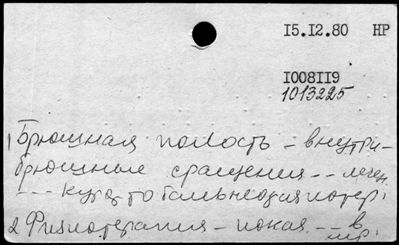 15.12.80 НР
1008119
1013225
1 Брюшная полость – внутри-
брюшные сращения – – лечен.
– – – Курортобальнеология и тер.
2 Физиотерапия – показ. – – в